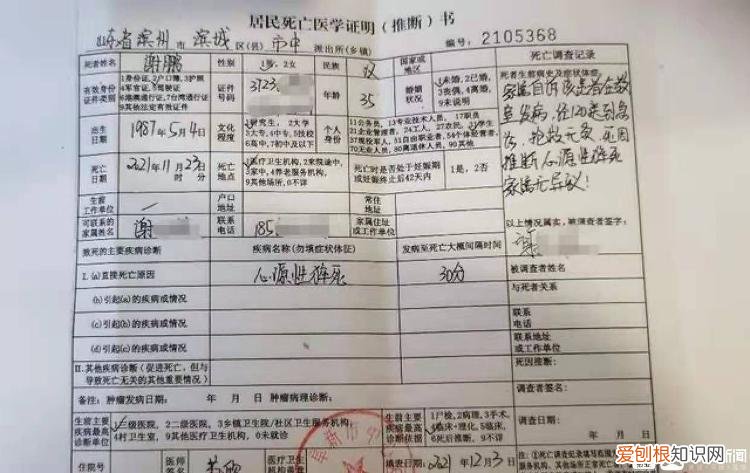 居民死亡医学证明（推断）书
山东省滨州 市 滨城 区(县) 市中 派出所(乡镇)
编号: 2105368
死者姓名 谢鹏 性别 1男, 2女 民族 汉 国家或地区
死亡调查记录
有效身份证件类别 1身份证, 2户口簿, 3护照 4军官证, 5驾驶证 6港澳通行证, 7台湾通行证 9其他法定有效证件 证件号码 3723 年龄 35 婚姻状况 1未婚, 2已婚, 3丧偶, 4离婚, 9未说明
死者生前病史及症状体征:
家属自诉该患者在教室发病,经120送到急诊,抢救无效,死因推断心源性猝死家属无异议!
出生日期 1987年5月4日 文化程度 1研究生, 2大学 3大专, 4中专, 5技校 6高中, 7初中及以下 个人身份 11公务员, 13专业技术人员, 17职员 21企业管理者, 24工人, 27农民, 31学生 37现役军人, 51自由职业者, 54个体经营者, 70无业人员, 80离退休人员, 90其他
死亡日期 2021年11月23日 时 分 死亡地点 1医疗卫生机构, 2来院途中, 3家中, 4养老服务机构, 9其他场所, 0不详 死亡时是否处于妊娠期或妊娠终止后42天内 1是, 2否
生前工作单位 一 户口地址 常住地址
可联系的家属姓名 谢 联系电话 185 家属住址或工作单位
以上情况属实, 被调查者签字:
致死的主要疾病诊断 疾病名称(勿填症状体征) 发病至死亡大概间隔时间
被调查者姓名
I. (a)直接死亡原因 心源性猝死 30分
与死者关系
(b)引起(a)的疾病或情况
联系电话
(c)引起(b)的疾病或情况
联系地址或工作单位
(d)引起(c)的疾病或情况
死因推断:
II.其他疾病诊断(促进死亡, 但与导致死亡无关的其他重要情况)
调查者签名:
备注: 肿瘤发病日期: 年 月 日 肿瘤病理诊断:
生前主要疾病最高诊断单位 1三级医院, 2二级医院, 3乡镇卫生院/社区卫生服务机构, 4村卫生室, 9其他医疗卫生机构, 0未就诊 生前主要疾病最高诊断依据 1尸检, 2病理, 3手术, 4临床+理化, 5临床, 6死后推断, 9不详
调查日期: 年 月 日
住院号 医师签名 医疗卫生机构盖章 填表日期 2021年12月3日
注: ①死亡调查记录填写范围
爱刨根知识网
新闻